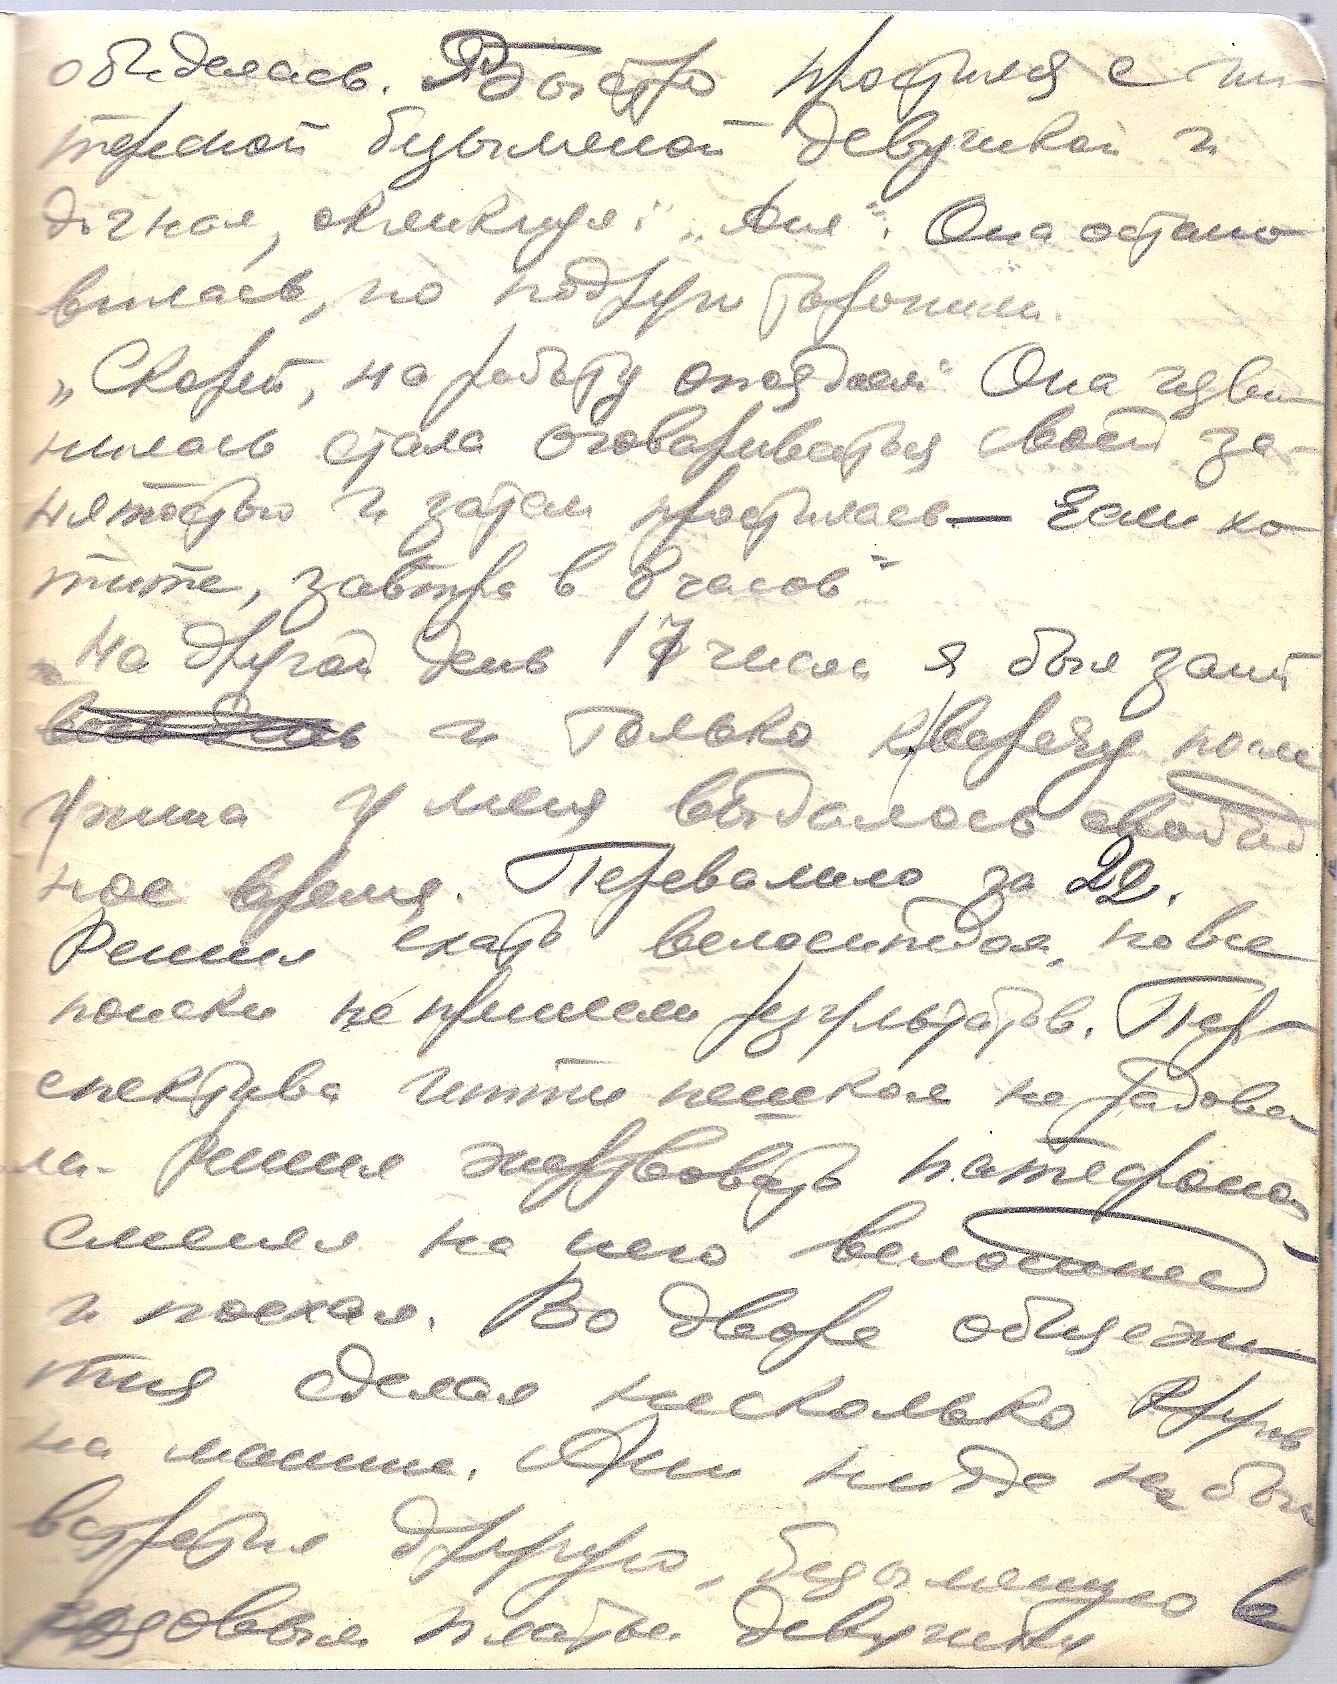 обиделась. Я быстро простился с пи-
терской безымяной девушкой и
догнал, окликнул: „Аня". Она остано-
вилась, но подруги торопили.
„Скорей, на работу опоздаем" Она изви-
нилась стала оговариваться своей за-
нятостью и затем простилась — Если хо-
тите, завтра в 8 часов"
На другой день 17 числа я был занят
весь день и только к вечеру после
ужина у меня выдалось свобод
ное время. Перевалило за 22.
Решил ехать велосипедом, но все
поиски не принесли результатов. Пер-
спектива итти пешком не радова
ла. Решил жертвовать патефоном
сменял на него велосипед
и поехал. Во дворе общежи-
тия сделал несколько кругов
на машине. Ани нигде не было
встретил другую, безымянную в
розовом платье девушку